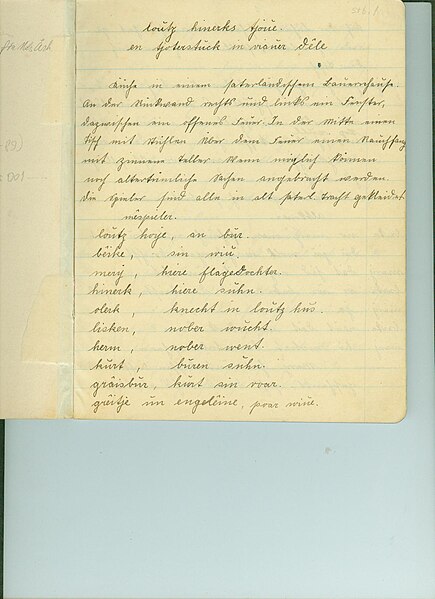 Stb. 1
loutz hinerks tjoue.
en tjoterstück in viauer déle
Küche in einem saterländischem Bauernhause.
An der Rückwand rechts und links ein Fenster,
dazwischen ein offenes Feuer In der Mitte einen
Tisch mit Stühlen über dem Feuer einen Rauchfang
mit zinnene teller Wenn möglich können
noch altertümliche Sachen angebracht werden.
Die Spieler sind alle in alt saterl. tracht gekleidet.
mëspieler.
loutz hoye, en bur.
beike, sin wiu.
mery, hiere flagedochter.
hinerk, hiere suhn.
olerk, knecht in loutz hus.
lisken, nober wucht.
herm, nober went.
kurt, buren suhn.
gräisbur, kurt sin voar.
greitje un engeleine, poar wiue.